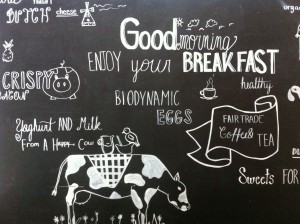 DUTCH cheese
Good morning
ENJOY your BREAKFAST
CRISPY
BACON
healthy
BIODYNAMIC
EGGS
FAIRTRADE
Coffee &
TEA
Yoghurt AND Milk
From A HAPPY Cow
Sweets FOR